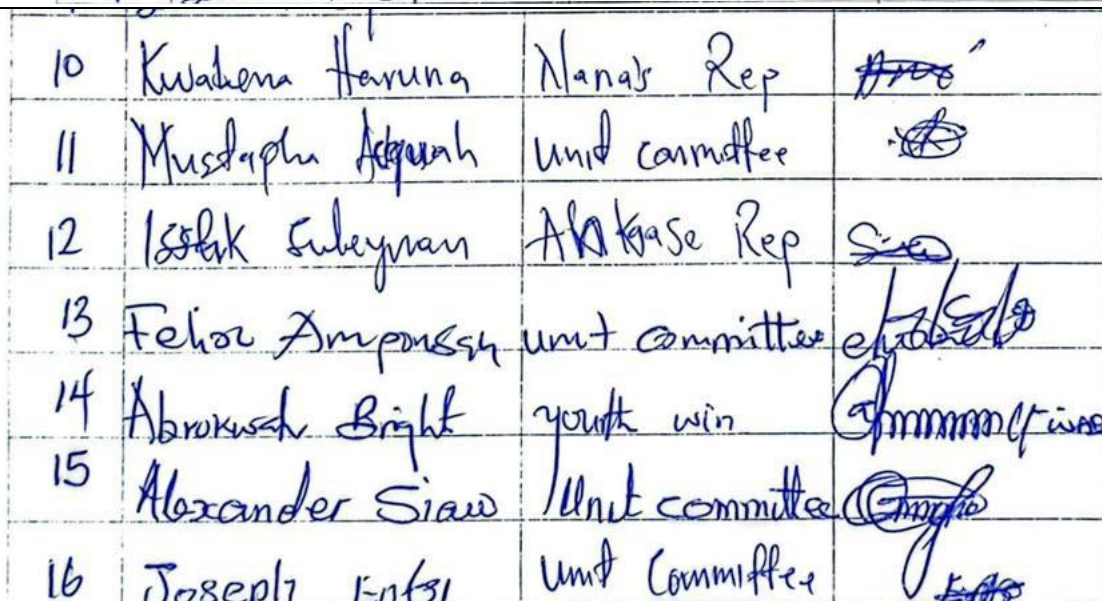 10 Kwabena Haruna Nana's Rep
11 Mustapha Acquah unit committee
12 Isshak Suleyman Rep
13 Felix Amponsah unit committee
14 Abrokwah Bright youth win
15 Alexander Siaw Unit committee
16 Joseph Entsi Unit Committee